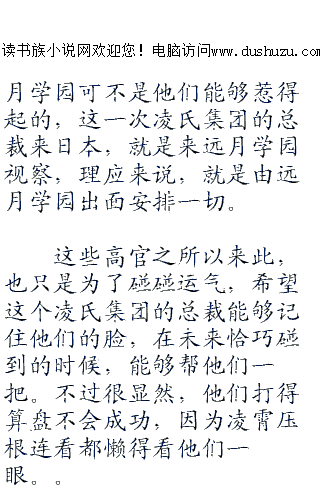 读书族小说网欢迎您！电脑访问www.dushuzu.com
月学园可不是他们能够惹得
起的，这一次凌氏集团的总
裁来日本，就是来远月学园
视察，理应来说，就是由远
月学园出面安排一切。
这些高官之所以来此，
也只是为了碰碰运气，希望
这个凌氏集团的总裁能够记
住他们的脸，在未来恰巧碰
到的时候，能够帮他们一
把。不过很显然，他们打得
算盘不会成功，因为凌霄压
根连看都懒得看他们一
眼。。